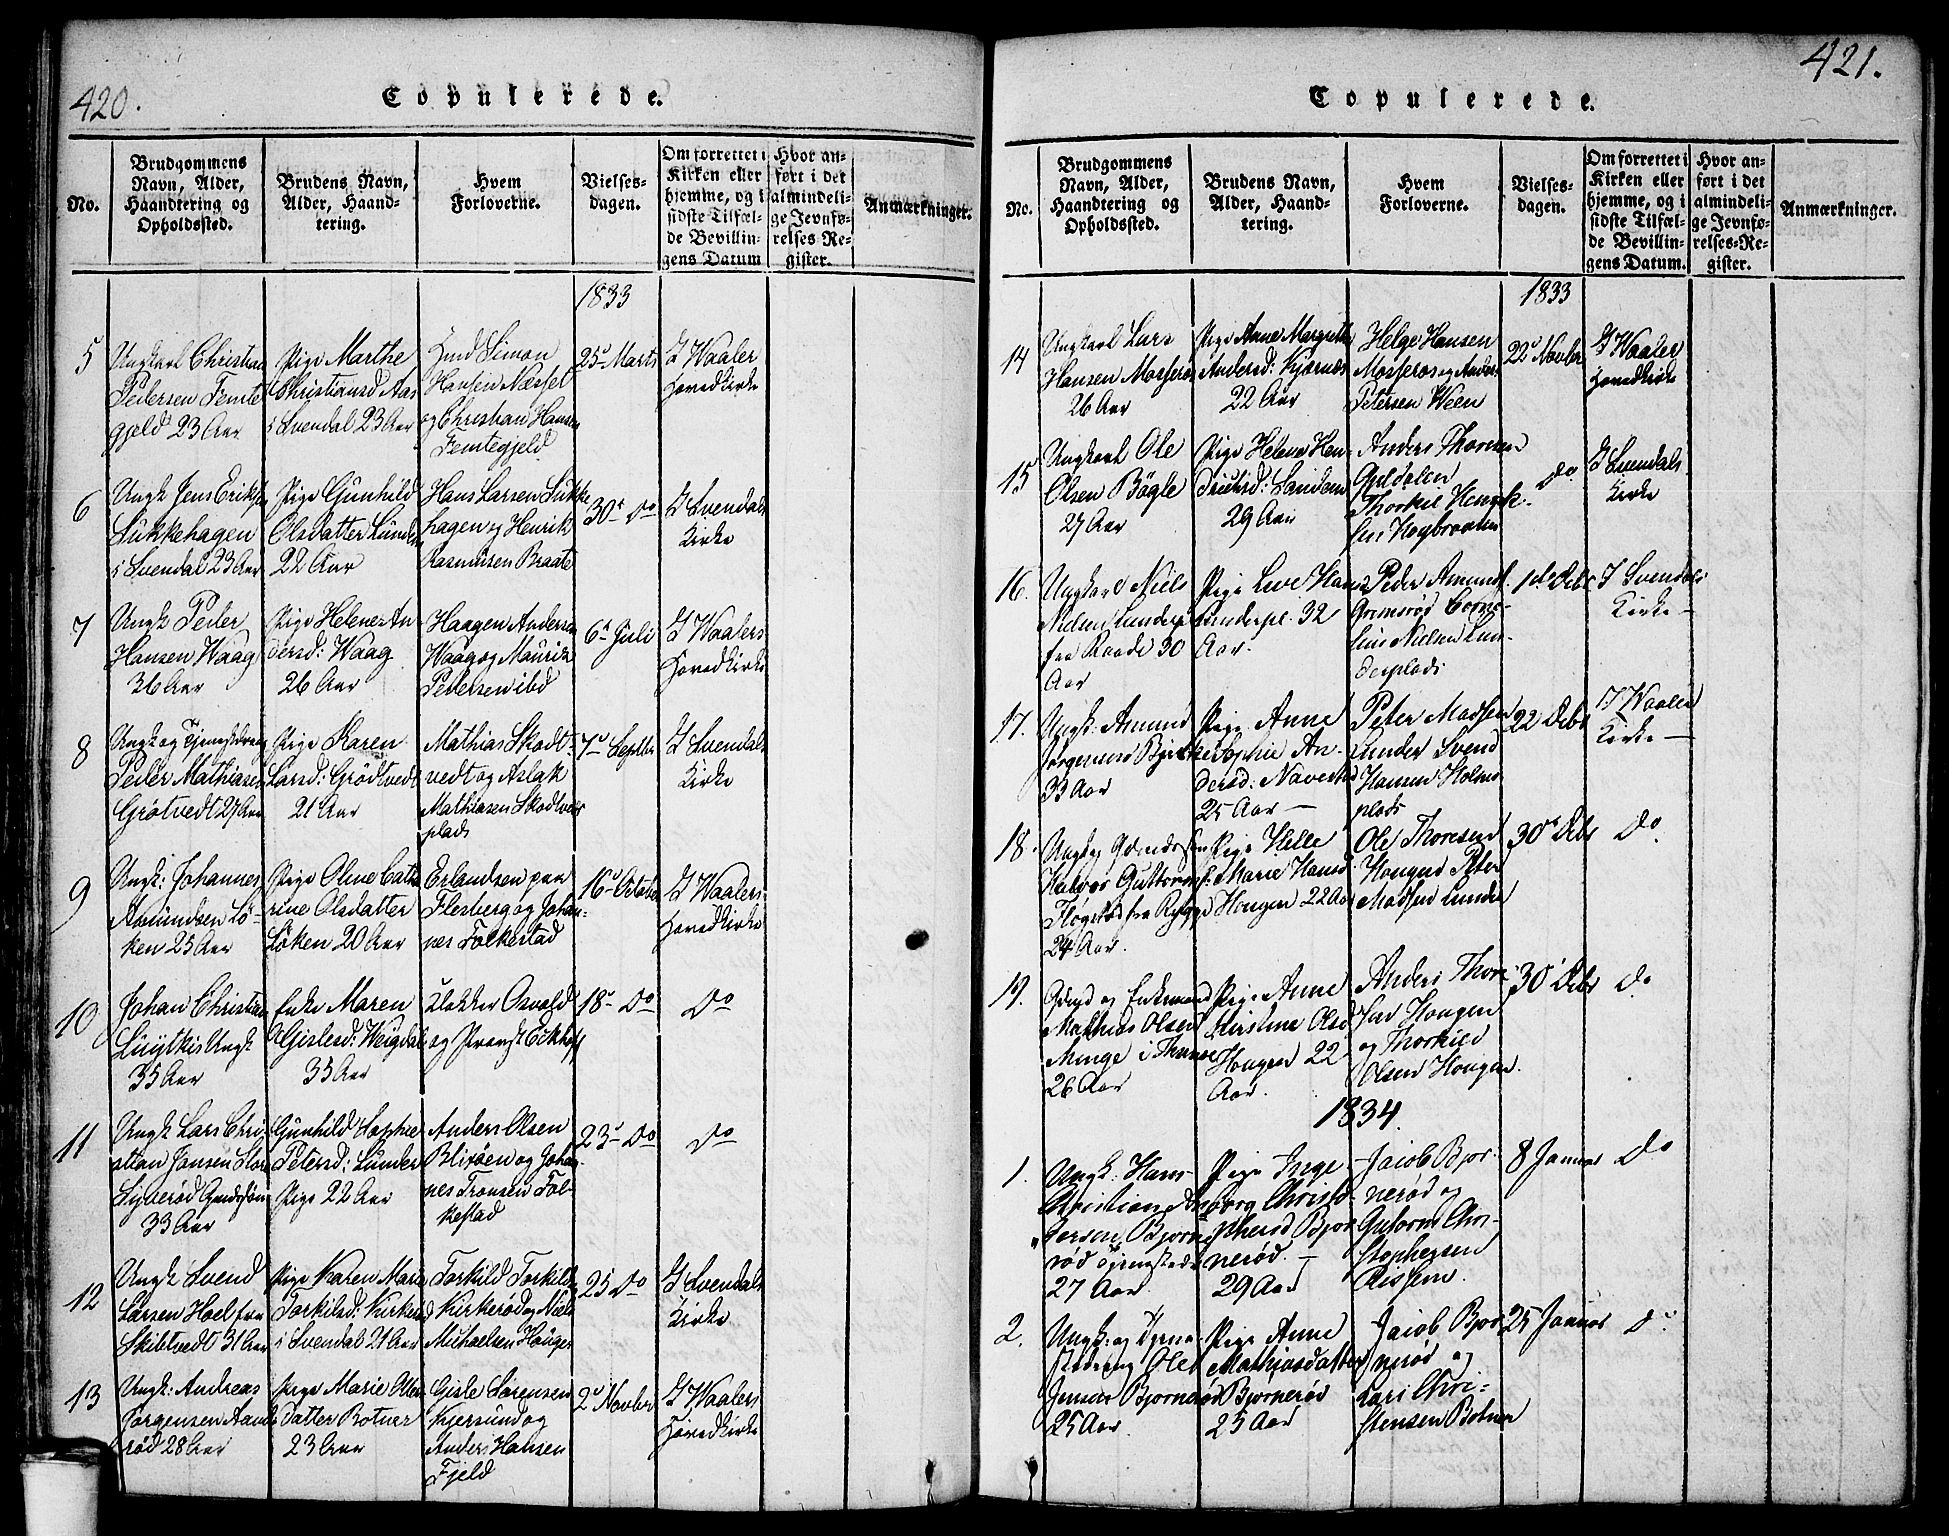 420.
Copulerede.
No.
Brudgommens
Navn, Alder,
Haandtering og
Opholdssted.
Brudens Navn,
Alder, Haand-
tering.
Hvem
Forloverne.
Vielses-
dagen.
Om forrettet i
Kirken eller
hjemme, og i
sidste Tilfæl-
de Bevillin-
gens Datum
Hvor an-
ført i det
almindeli-
ge Jevnfø-
relses Re-
gister.
Anmærkninger.
1833
5
Ungkarl Christian
Pedersen Femte
gjeld 23 Aar
Pige Marthe
Christiansd Aas
i Svendal 23 Aar
Simon
Hansen Næssel
og Christian Hansen
Femtegjeld
25 Marts
I Waaler
Hovedkirke
6
Ungk Jens Eriks
Sukkehagen
i Svendal 23 Aar
Pige Gunhild
Olsdatter Lunde
22 Aar
Hans Larsen Sukke
hagen og Henrik
Rasmussen Braate
30 do
I Svendals
Kirke
7
Ungk Peder
Hansen Waag
36 Aar
Pige Helene An
dersd: Waag
26 Aar
Haagen Andersen
Waag og Mauritz
Pedersen ibd
6 Juli
I Waalers
Hovedkirke
8
Ungk og Tjenestedreng
Peder Mathiasen
Grøtvedt 27 Aar
Pige Karen
Larsd: Grödtvedt
21 Aar
Mathias Skodt-
vedt og Aslak
Mathiasen Skodtveds
plads
7 Septbr
I Svendals
Kirke
9
Ungk: Johannes
Amundsen Lö-
ken 25 Aar
Pige Oline Cathe
rine Olsdatter
Løken 20 Aar
Erlandsen paa
Flesberg og Johan-
nes Folkestad
16 October
I Waalers
Hovedkirke
10
Johan Christian
Ungk
35 Aar
Enke Maren
Gislesd: Weigdal
35 Aar
Klokker Osvald
og
18 do
do
11
Ungk Lars Chri
stian Jansen Stor
33 Aar
Gunhild Sophie
Petersd: Lunder
Pige 22 Aar
Anders Olsen
Blixöen og Johan-
nes Fransen Fol-
kestad
23 do
do
12
Ungk Svend
Larsen Hoel fra
Skibtvedt 31 Aar
Pige Karen Marie
Torkilsd: Kirkerö
i Svendal 21 Aar
Torkild Torkilds
Kirkerød og Niels
Michaelsen Haugen
25 do
I Svendals
Kirke
13
Ungk: Andreas
Jørgensen Aande
röd 28 Aar
Pige Marie Olsen
datter Botner
23 Aar
Gisle Sorensen
Kjersund og
Anders Hansen
Fjeld
2 Novber
I Waalers
Hovedkirke
421.
Copulerede.
No.
Brudgommens
Navn, Alder,
Haandtering og
Opholdssted.
Brudens Navn,
Alder, Haand-
tering.
Hvem
Forloverne.
Vielses-
dagen.
Om forrettet i
Kirken eller
hjemme, og i
sidste Tilfæl-
de Bevillin-
gens Datum.
Hvor an-
ført i det
almindeli-
ge Jevnfø-
relses-Re-
gister.
Anmærkninger.
1833
14
Ungkarl Lars
Hansen Mosseros
26 Aar
Pige Anne Margrethe
Andersd: Kjærnæs
22 Aar
Helge Hansen
Mosseros og Anders
Petersen Ween
22 Novber
I Waaler
Hovedkirke
15
Ungkarl Ole
Olsen Bögle
27 Aar
Pige Helene Hen-
29 Aar
Anders Thoresen
Guldolen
Thorkil Henrik-
sen Høgbraaten
do.
I Svendals
Kirke
16.
Ungkarl Niels
Nielsen Lunder
fra Raade 30
Aar
Pige Live Hans
Lunderpl. 32
Aar.
Peder Amunds.
Grimsrød Corne-
lius Nielsen Lun-
derplads
1 Debr
I Svendals
Kirke —
17.
Ungk: Amund
Jørgensen
33 Aar
Pige Anne
Sophie An-
dersd: Navestad
25 Aar —
Peter Madsen
Lunder Svend
Hansen Holme
plads
22 Debr
I Waaler
Kirke —
18.
Halvor Guttorms:
Fløgstad fra Rygge
24 Aar.
Pige Helle
Marie Hansd
Hougen 22 Aar
Ole Thoresen
Hougen Peter
Madsen Lunder
30 Debr
do.
19.
og Enkemand
Mathias Olsen
Minge i Thune
26 Aar
Pige Anne
Kirstine Olsd
Hougen 22
Aar.
Anders Thore
sen Hougen
og Thorkild
Olsen Hougen.
30 Debr
do
1834.
1.
Ungk: Hans
Christian An
dersen Bjorne
rød
27 Aar.
Pige Inge
borg Christo
phersd Bjor
nerød. —
29 Aar
Jacob Bjor
nerød og
Guttorm Chri-
stophersen
8 Januar
do
2.
Ungk: og Tjene
stedreng Ole
Jensen Bjornerød
25 Aar.
Pige Anne
Mathiasdatter
Bjornerød
25 Aar
Jacob Bjor
nerød og
Lars Chri-
stensen Botner
25 Januar
do